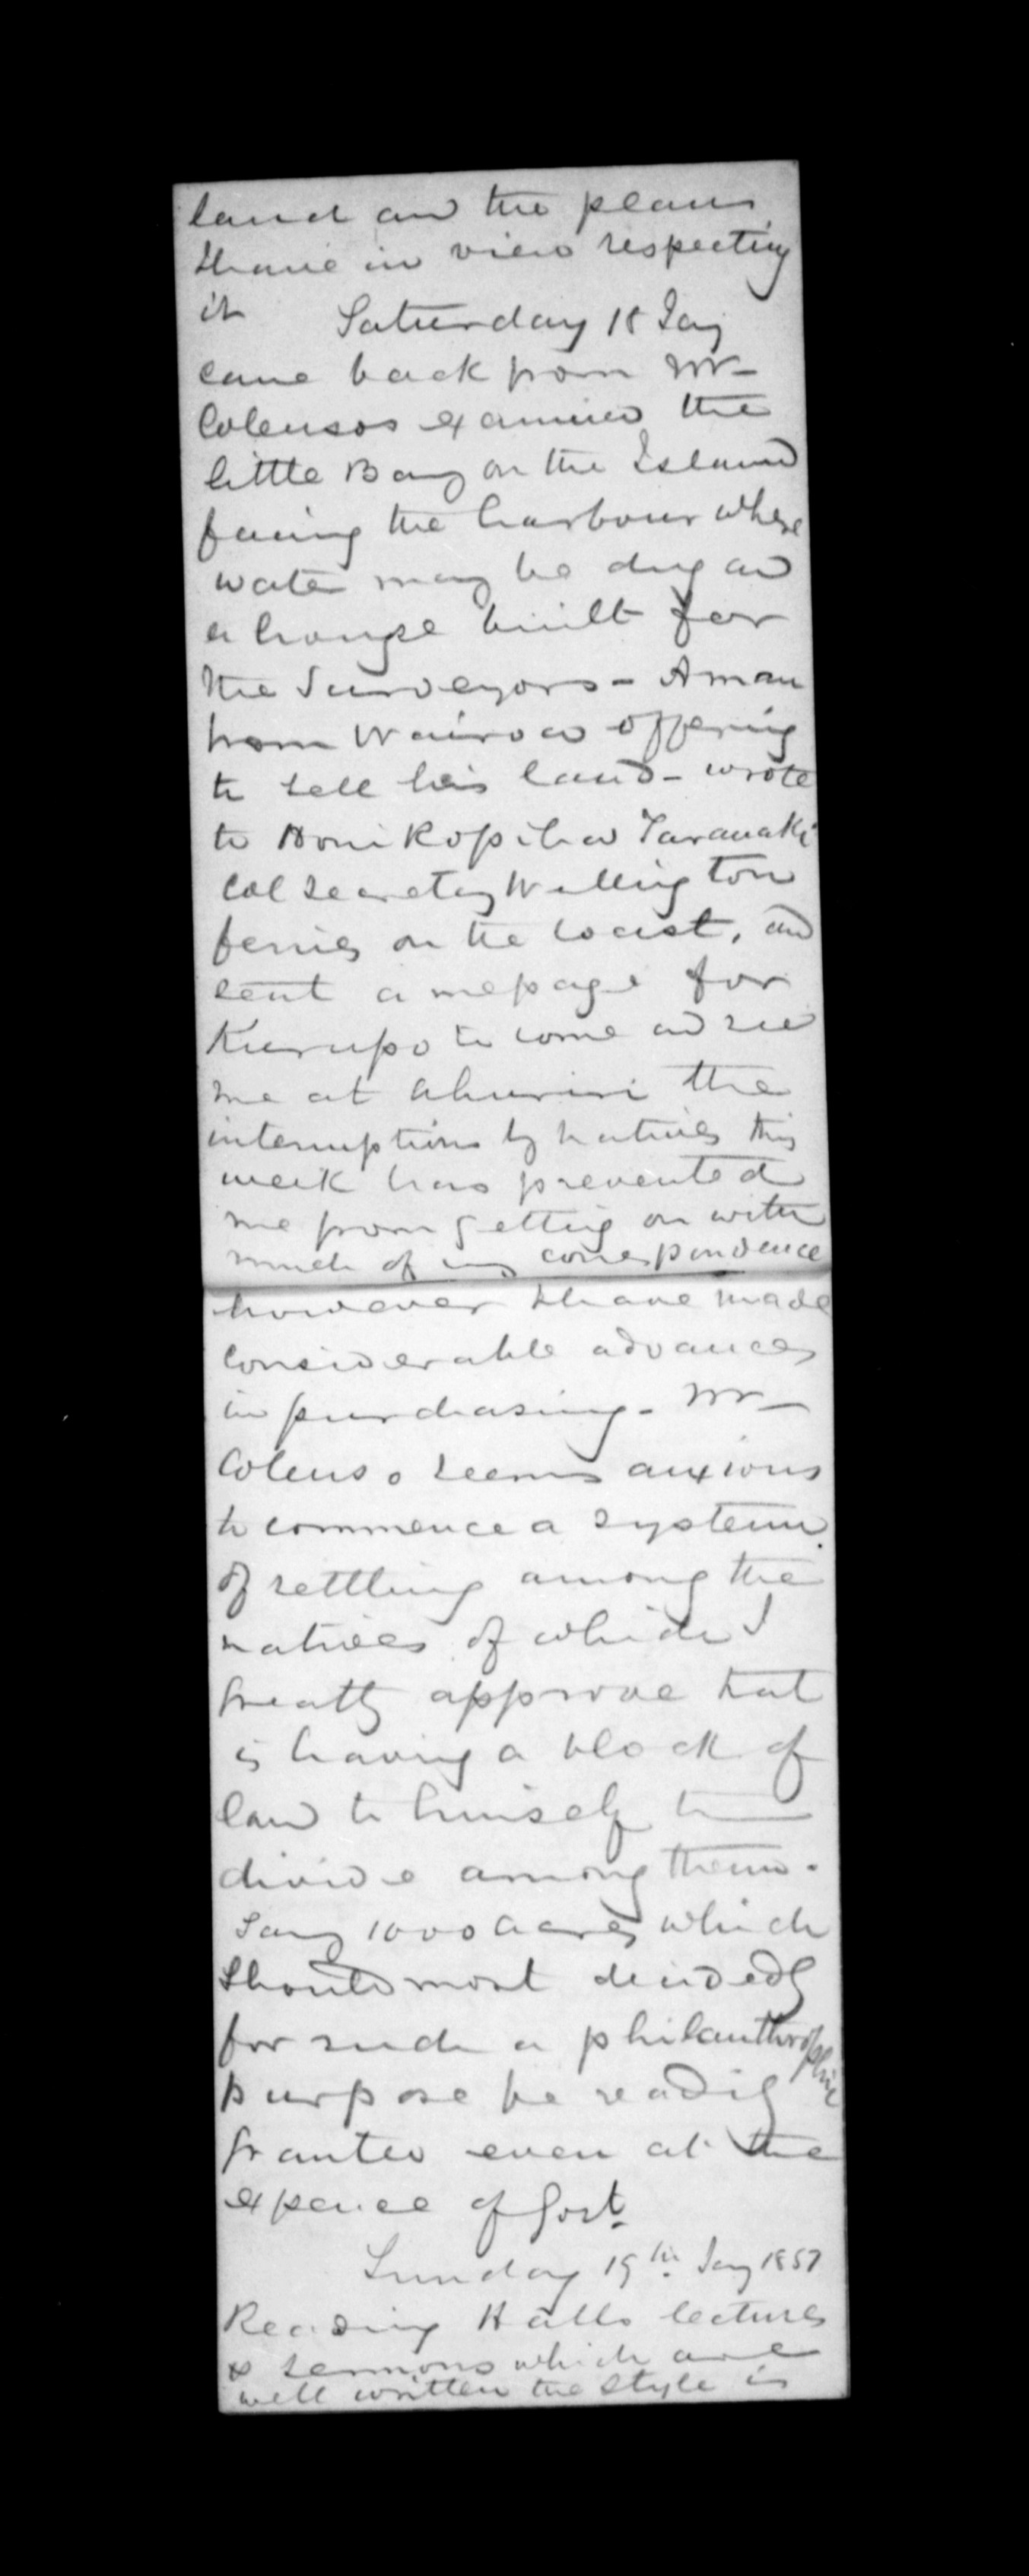 land and the plans
I have in view respecting
it Saturday 18 Jany
came back from Mr
Colensos examined the
little Bay on the Island
facing the harbour where
water may be dug and
a house built for
the Surveyors - A man
from Wairoa offering
to sell his land - wrote
to Honi Ropiha Taranaki
Col Secretary Wellington
ferries on the Coast, and
sent a message for
Kurupo to come and see
me at Ahuriri the
interruptions by natives this
week has prevented
me from getting on with
much of my correspondence
however I have made
considerable advances
in purchasing - Mr
Colenso seems anxious
to commence a system
of settling among the
natives of which I
greatly approve that
is having a block of
land to himself to
divide among them.
Say 1000 acres which
should most decidedly
for such a philanthrophic
purpose be readily
granted even at the
expence of Govt.
Sunday 19th Jany 1851
Reading Halls lectures
& sermons which are
well written the style is